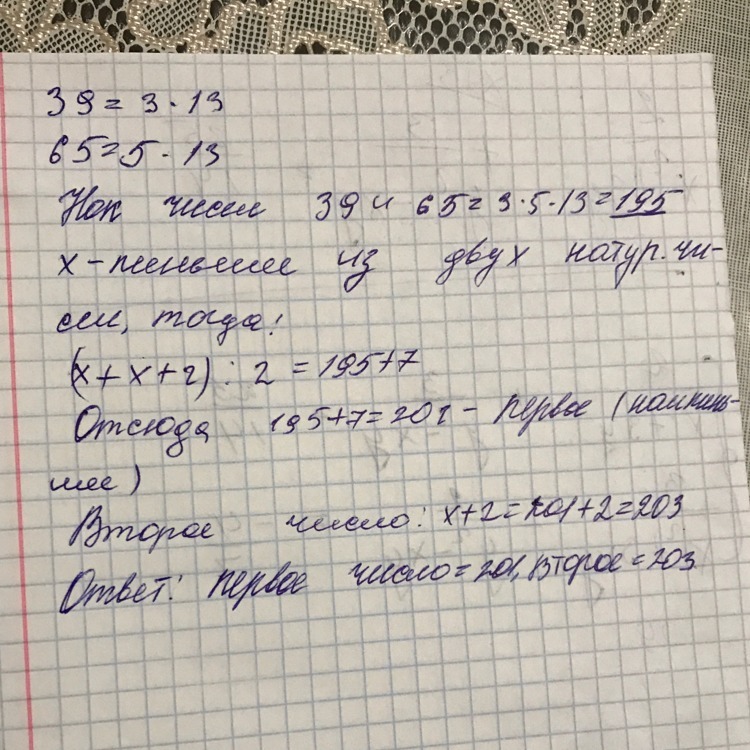 39 = 3 · 13
65 = 5 · 13
Нок чисел 39 и 65 = 3·5·13 = 195
x - меньшее из двух натур. чи-
сел, тогда:
(x + x + 2) : 2 = 195 + 7
Отсюда 195 + 7 = 202 - первое (наимень-
шее)
Второе число: x + 2 = 201 + 2 = 203
Ответ: первое число = 201, второе = 203